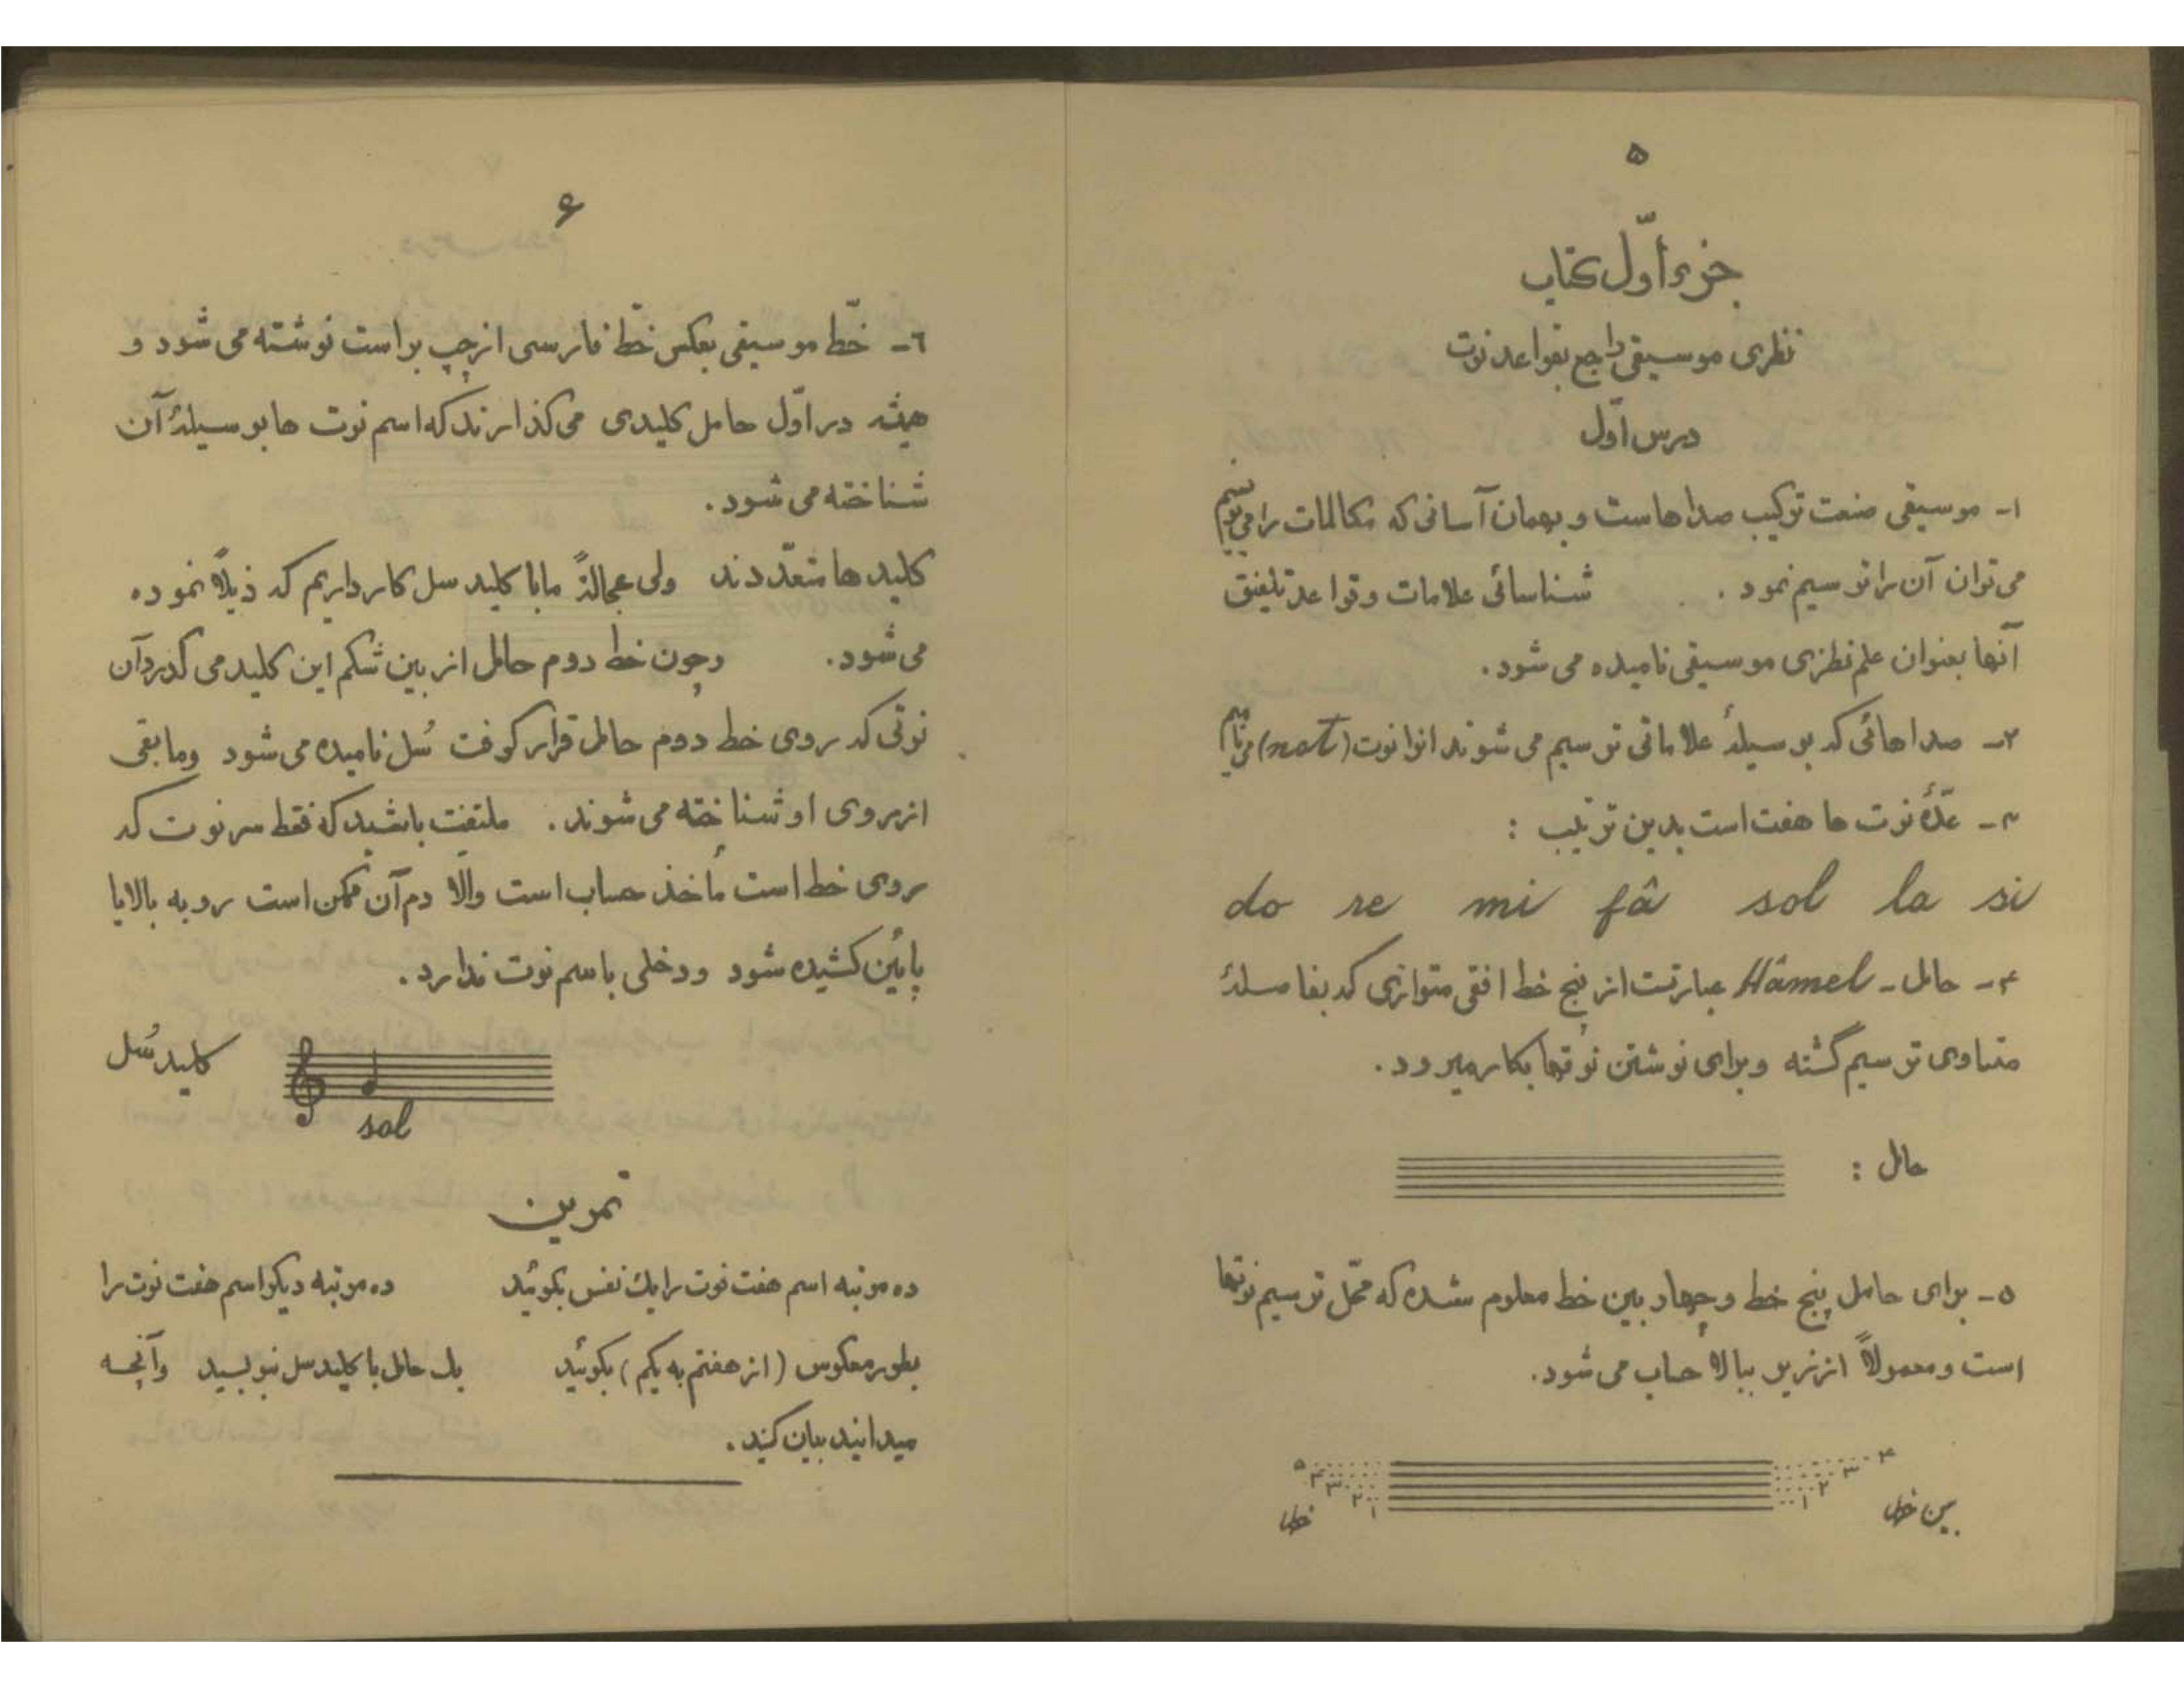 ۵
جزء اوّل کتاب
نظری موسیقی راجع بقواعد نوت
درس اوّل
۱- موسیقی صنعت ترکیب صداهاست و بهمان آسانی که مکالمات را می‌نویسیم
می‌توان آن را توسیم نمود . شناسائی علامات و قواعد تلفیق
آنها بعنوان علم نظری موسیقی نامیده می شود.
۲- صداهائی که بوسیلهٔ علاماتی ترسیم می شوند انوا نوت (not) می‌نامیم
۳- عدّهٔ نوت ها هفت است بدین ترتیب :
do re mi fâ sol la si
۴- حامل - Hâmel عبارتست از پنج خط افقی متوازی که بفاصلهٔ
متساوی ترسیم گشته و برای نوشتن نوتها بکار میرود.
حامل :
۵- برای حامل پنج خط و چهار بین خط معلوم شده که محّل ترسیم نوتها
است و معمولاً از زیر ببالا حساب می شود.
۵ ۴ ۳ ۲ ۱ ۱ ۲ ۳ ۴
خط بین خط
۶
٦- خّط موسیقی بعکس خّط فارسی از چپ براست نوشته می شود و
همیشه در اوّل حامل کلیدی می گذارند که اسم نوت ها بوسیلهٔ آن
شناخته می شود.
کلیدها متعدّدند ولی عجالةً ما با کلید سل کار داریم که ذیلاً نموده
می شود. و چون خط دوم حامل از بین شکم این کلید می گذرد آن
نوتی که روی خط دوم حامل قرار گرفت سُل نامیده می شود و مابقی
از روی او شناخته می شوند. ملتفت باشید که فقط سر نوت که
روی خط است مأخذ حساب است والّا دم آن ممکن است رو به بالا یا
پایئن کشیده شود و دخلی باسم نوت ندارد.
کلید سُل
sol
تمرین
ده مرتبه اسم هفت نوت را یك نفس بگوئید ده مرتبه دیگر اسم هفت نوت را
بطور معکوس (از هفتم به یکم) بگوئید یك حامل با کلید سل بنویسید و آنچه
میدانید بیان کنید.